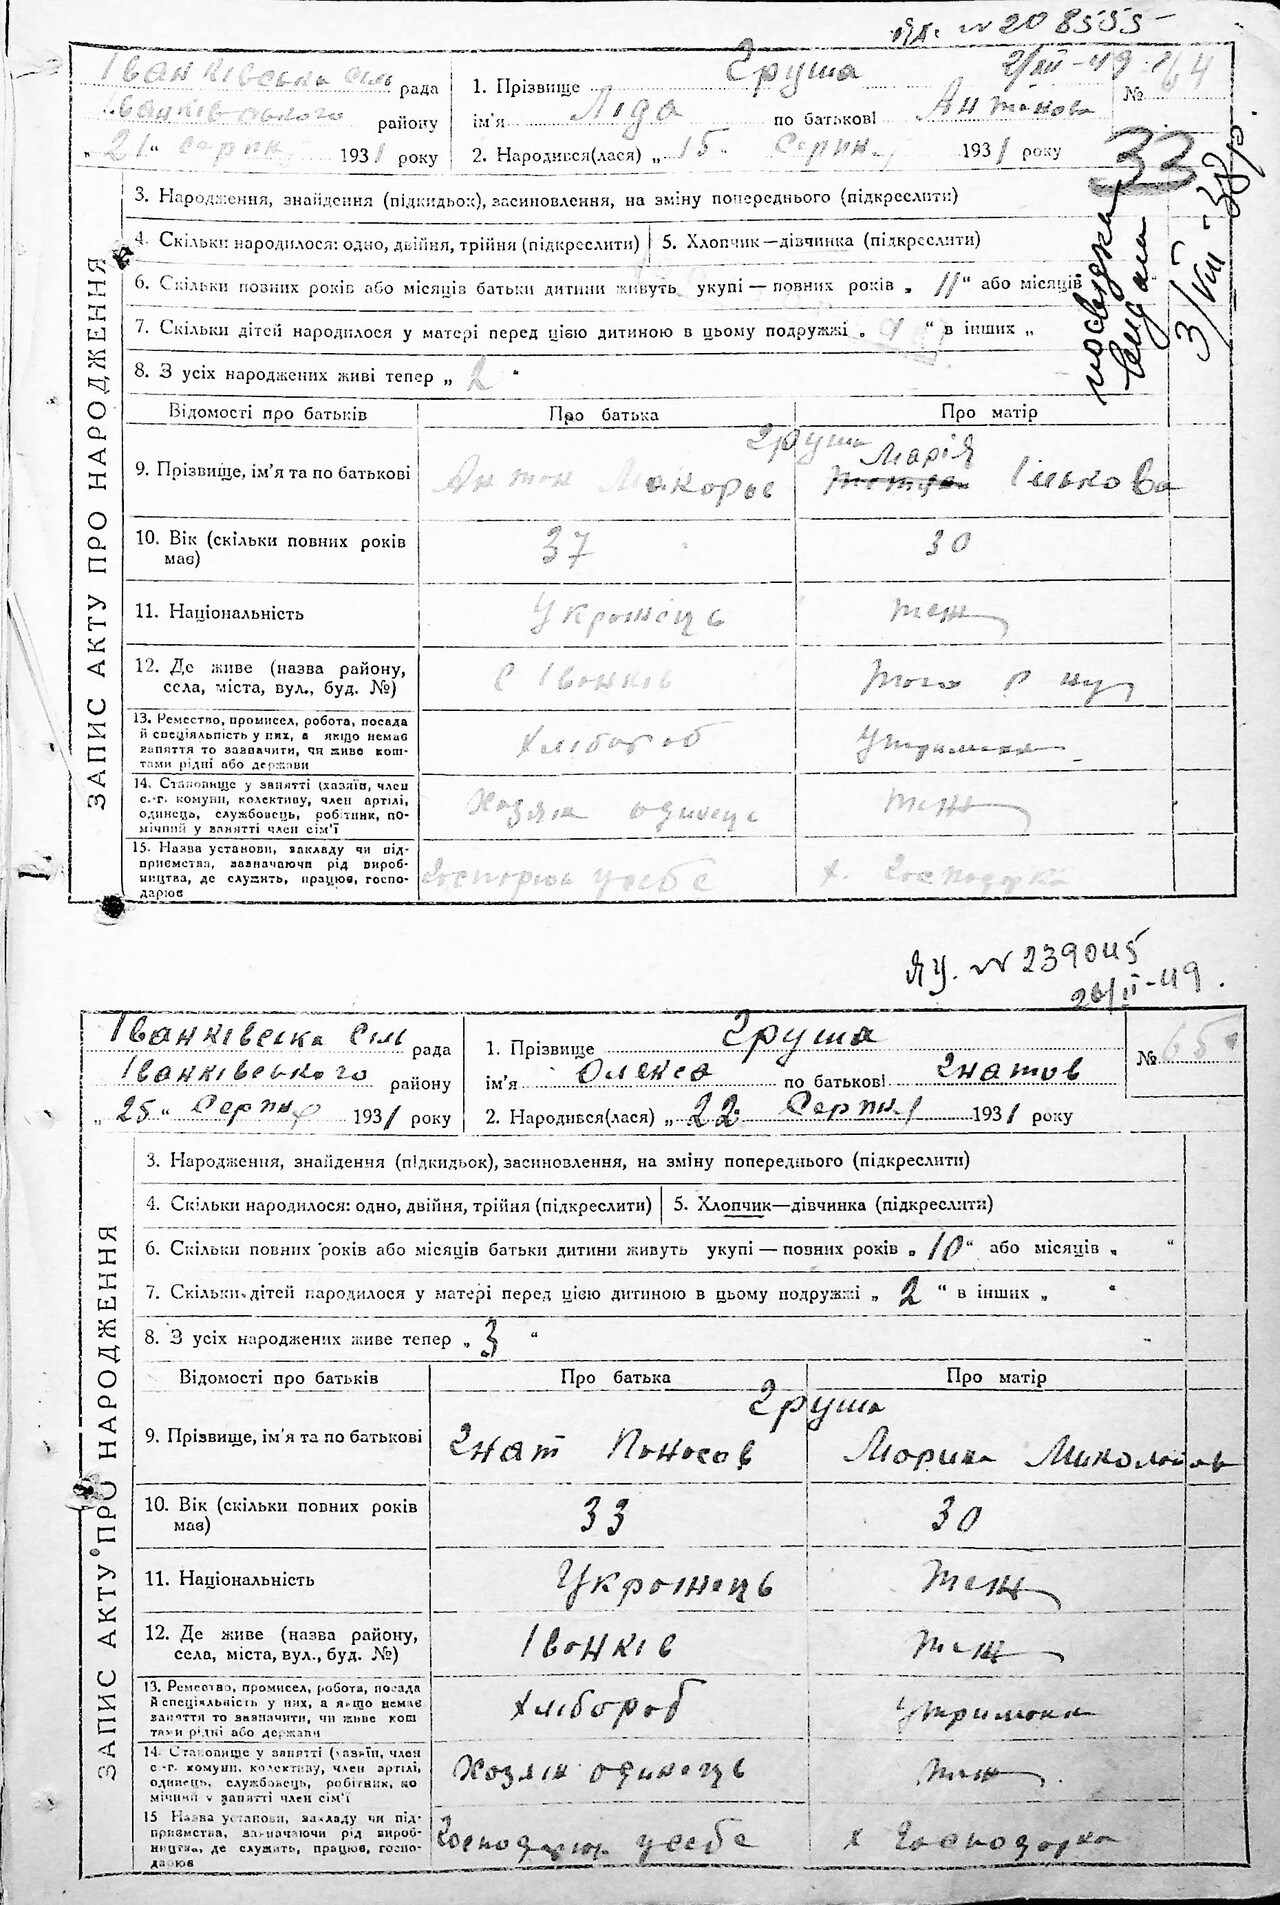 № 208555
Іванківська сіль рада
Іванківського району
„21“ Серпня 1931 року
1. Прізвище Груша
2/XII-49
№ 64
ім'я Ліда по батькові Антонова
2. Народився(лася) „15“ Серпня 1931 року
33
посвідка видана
3/VIII-38р.
ЗАПИС АКТУ ПРО НАРОДЖЕННЯ
3. Народження, знайдення (підкидьок), засиновлення, на зміну попереднього (підкреслити)
4. Скільки народилося: одно, двійня, трійня (підкреслити)
5. Хлопчик—дівчинка (підкреслити)
6. Скільки повних років або місяців батьки дитини живуть укупі — повних років „11“ або місяців
7. Скільки дітей народилося у матері перед цією дитиною в цьому подружжі „ “ в інших „
8. З усіх народжених живі тепер „2“
Відомості про батьків Про батька Про матір
Груша
9. Прізвище, ім'я та по батькові Антон Макоров Марія Ількова
10. Вік (скільки повних років має) 37 30
11. Національність Українець теж
12. Де живе (назва району, села, міста, вул., буд. №) с Іванків
13. Ремество, промисел, робота, посада й спеціяльність у них, а якщо немає заняття то зазначити, чи живе коштами рідні або держави Хлібороб утриманка
14. Становище у занятті (хазяїн, член с.-г. комуни, колективу, член артілі, одинець, службовець, робітник, помічний у занятті член сім'ї Хозяін одинець теж
15. Назва установи, закладу чи підприємства, зазначаючи рід виробництва, де служить, працює, господарює у себе х. Господарка
ЯУ. № 239045
26/II-49.
Іванківська сіль рада
Іванківського району
„25“ Серпня 1931 року
1. Прізвище Груша
№ 65
ім'я Олекса по батькові Гнатов
2. Народився(лася) „22“ Серпня 1931 року
ЗАПИС АКТУ ПРО НАРОДЖЕННЯ
3. Народження, знайдення (підкидьок), засиновлення, на зміну попереднього (підкреслити)
4. Скільки народилося: одно, двійня, трійня (підкреслити)
5. Хлопчик—дівчинка (підкреслити)
6. Скільки повних років або місяців батьки дитини живуть укупі — повних років „10“ або місяців „ “
7. Скільки дітей народилося у матері перед цією дитиною в цьому подружжі „2“ в інших „ “
8. З усіх народжених живе тепер „3“
Відомості про батьків Про батька Про матір
Груша
9. Прізвище, ім'я та по батькові Гнат Панасов Морина Миколаіов
10. Вік (скільки повних років має) 33 30
11. Національність Українець теж
12. Де живе (назва району, села, міста, вул., буд. №) Іванків теж
13. Ремество, промисел, робота, посада й спеціяльність у них, а якщо немає заняття то зазначити, чи живе коштами рідні або держави Хлібороб утриманка
14. Становище у занятті (хазяїн, член с.-г. комуни, колективу, член артілі, одинець, службовець, робітник, помічний у занятті член сім'ї Хозяін одинець теж
15 Назва установи, закладу чи підприємства, зазначаючи рід виробництва, де служить, працює, господарює Господарює у себе х Господарка